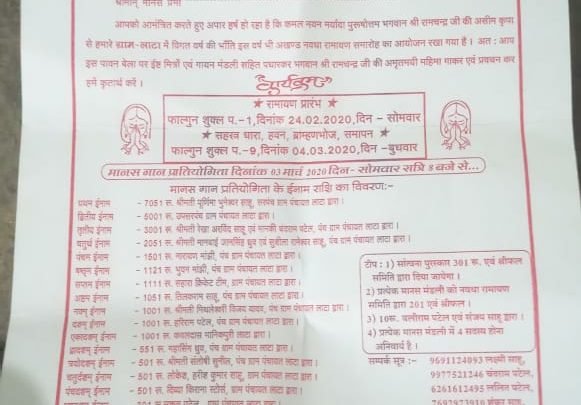 श्रीमान् मानस प्रेमी
आपको आमंत्रित करते हुए अपार हर्ष हो रहा है कि कमल नयन मर्यादा पुरूषोत्तम भगवान श्री रामचन्द्र जी की असीम कृपा
से हमारे ग्राम-लाटा में विगत वर्ष की भाँति इस वर्ष भी अखण्ड नवधा रामायण समारोह का आयोजन रखा गया है। अत : आप
इस पावन बेला पर ईष्ट मित्रों एवं गायन मंडली सहित पधारकर भगवान श्री रामचन्द्र जी की अमृतमयी महिमा गाकर एवं प्रवचन कर
हमें कृतार्थ करें।
कार्यक्रम
★ रामायण प्रारंभ ★
फाल्गुन शुक्ल प.-1, दिनांक 24.02.2020, दिन - सोमवार
★ सहस्त्र धारा, हवन, ब्राम्हणभोज, समापन ★
फाल्गुन शुक्ल प.-9, दिनांक 04.03.2020, दिन - बुधवार
मानस गान प्रतियोगिता दिनांक 03 मार्च 2020 दिन- सोमवार रात्रि 8 बजे से...
मानस गान प्रतियोगिता के ईनाम राशि का विवरण:-
प्रथम ईनाम - 7051 रु. श्रीमती पूर्णिमा भुनेश्वर साहू, सरपंच ग्राम पंचायत लाटा द्वारा।
द्वितीय ईनाम - 5001 रु. उपसरपंच ग्राम पंचायत लाटा द्वारा।
तृतीय ईनाम - 3001 रु. श्रीमती रेखा अरविंद साहू एवं मानकी चंदराम पटेल, पंच ग्राम पंचायत लाटा द्वारा।
चतुर्थ ईनाम - 2051 रु. श्रीमती मानबाई जानसिंह ध्रुव एवं सुशीला रामेश्वर साहू, पंच ग्राम पंचायत लाटा द्वारा।
पंचम ईनाम - 1501 रु. नारायण मांझी, पंच ग्राम पंचायत लाटा द्वारा।
षष्ठम ईनाम - 1121 रु. भुवन मांझी, पंच ग्राम पंचायत लाटा द्वारा।
सप्तम ईनाम - 1111 रु. सहारा क्रिकेट टीम, ग्राम पंचायत लाटा द्वारा।
अष्टम ईनाम - 1051 रु. तिलकराम साहू, पंच ग्राम पंचायत लाटा द्वारा।
नवम् ईनाम - 1001 रु. श्रीमती मिथलेश्वरी विजय यादव, पंच ग्राम पंचायत लाटा द्वारा।
दशम् ईनाम - 1001 रु. हरिराम पटेल, पंच ग्राम पंचायत लाटा द्वारा।
एकादशम् ईनाम - 1001 रु. कवलदास मानिकपुरी ग्राम पंचायत लाटा द्वारा।
द्वादशम् ईनाम - 551 रु. महासिंग ध्रुव, पंच ग्राम पंचायत लाटा द्वारा।
त्रयोदशम् ईनाम - 501 रु. श्रीमती संतोषी सुनील, पंच ग्राम पंचायत लाटा द्वारा।
चतुर्दशम् ईनाम - 501 रु. लोकेश, हरीश कुमार साहू, ग्राम पंचायत लाटा द्वारा।
पंचदशम् ईनाम - 501 रु. दिव्या किराना स्टोर्स, ग्राम पंचायत लाटा द्वारा।
टीप : 1) सांत्वना पुरस्कार 301 रु. एवं श्रीफल
समिति द्वारा दिया जायेगा।
2) प्रत्येक मानस मंडली को नवधा रामायण
समिति द्वारा 201 एवं श्रीफल।
3) 10रु. पानीराम पटेल एवं संजय साहू द्वारा।
4) प्रत्येक मानस मंडली में 4 सदस्य होना
अनिवार्य है।
सम्पर्क सूत्र :- 9691124093 लक्ष्मी साहू,
9977521246 चंदराम पटेल,
6261612495 ललित पटेल,
7697973910 शंकर साहू,